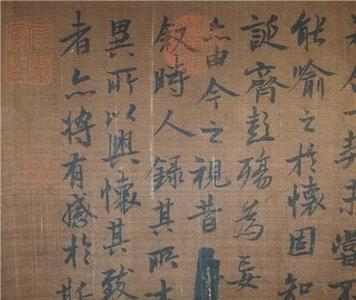 合一契未嘗不
能喻之於懷固知
誕齊彭殤為妄
亦由今之視昔
叙時人錄其所
異所以興懷其致
者亦將有感於斯